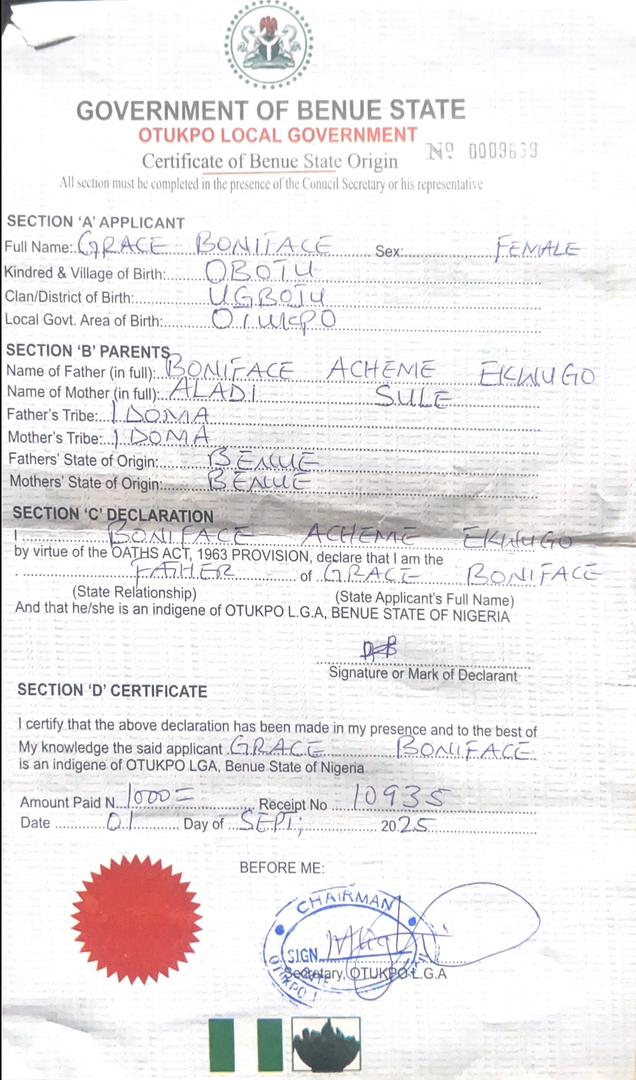 GOVERNMENT OF BENUE STATE
OTUKPO LOCAL GOVERNMENT
Certificate of Benue State Origin
Nº 0009639
All section must be completed in the presence of the Conucil Secretary or his representative
SECTION 'A' APPLICANT
Full Name: GRACE BONIFACE Sex: FEMALE
Kindred & Village of Birth: OBOTU
Clan/District of Birth: UGBOJU
Local Govt. Area of Birth: OTUKPO
SECTION 'B' PARENTS
Name of Father (in full): BONIFACE ACHEME EKWUGO
Name of Mother (in full): ALADI SULE
Father's Tribe: IDOMA
Mother's Tribe: IDOMA
Fathers' State of Origin: BENUE
Mothers' State of Origin: BENUE
SECTION 'C' DECLARATION
I BONIFACE ACHEME EKWUGO
by virtue of the OATHS ACT, 1963 PROVISION, declare that I am the
FATHER of GRACE BONIFACE
(State Relationship) (State Applicant's Full Name)
And that he/she is an indigene of OTUKPO L.G.A, BENUE STATE OF NIGERIA
Signature or Mark of Declarant
SECTION 'D' CERTIFICATE
I certify that the above declaration has been made in my presence and to the best of
My knowledge the said applicant GRACE BONIFACE
is an indigene of OTUKPO LGA, Benue State of Nigeria
Amount Paid N 1000= Receipt No 10935
Date 01 Day of SEPT; 2025
BEFORE ME:
CHAIRMAN
SIGN
Secretary, OTUKPO L.G.A
OTUKPO